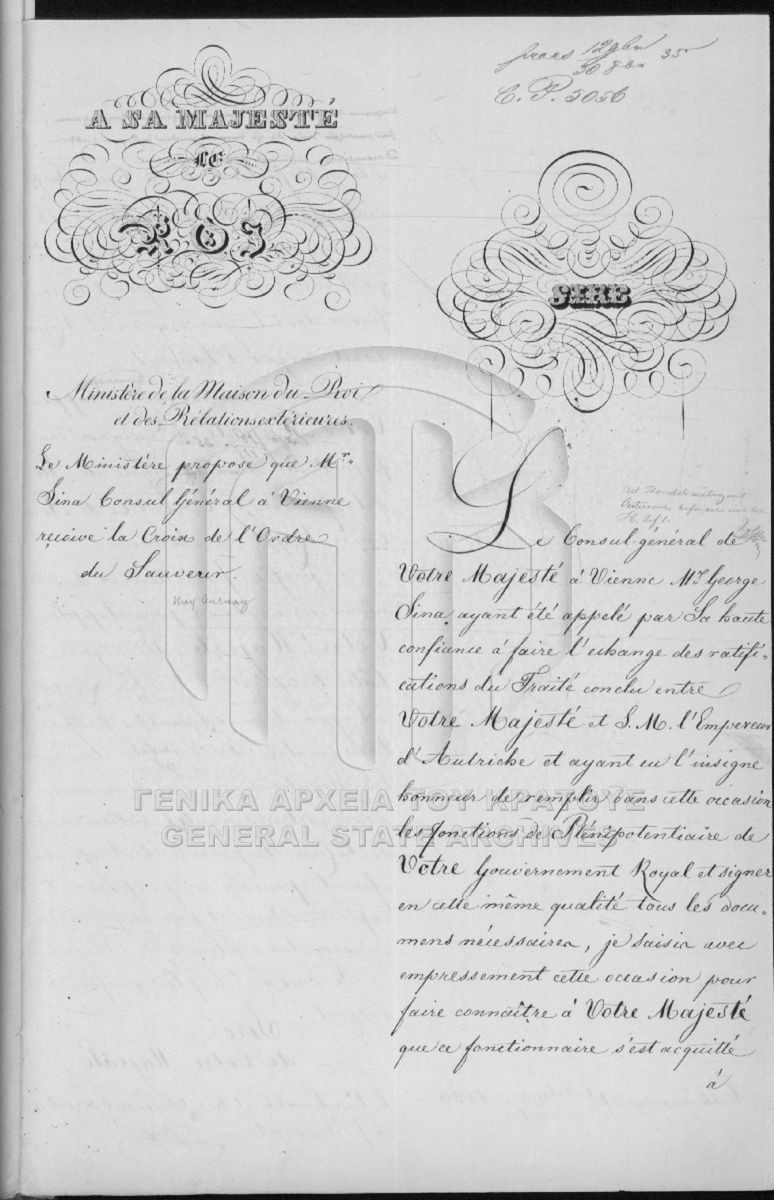 A SA MAJESTÉ
LE
ROI
Ministère de la Maison du Roi
et des Rélations extérieures.
Le Ministère propose que Mr.
Sina Consul Général à Vienne
reçoive la Croix de l'Ordre
du Sauveur.
praes 12 9br
30 35
C. P. 5056
SIRE
Le Consul-général de
Votre Majesté à Vienne Mr George
Sina, ayant été appelé par Sa haute
confiance à faire l'echange des ratifi-
cations du Traité conclu entre
Votre Majesté et S. M. l'Empereur
d'Autriche et ayant eu l'insigne
honneur de remplir dans cette occasion
les fonctions de Plénipotentiaire de
Votre Gouvernement Royal et signer
en cette même qualité tous les docu-
mens nécessaires, je saisis avec
empressement cette occasion pour
faire connaître à Votre Majesté
que ce fonctionnaire s'est acquitté
à
ΓΕΝΙΚΑ ΑΡΧΕΙΑ ΤΟΥ ΚΡΑΤΟΥΣ
GENERAL STATE ARCHIVES